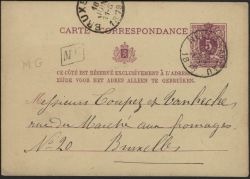 BRUX
1879
CARTE CORRESPONDANCE
5
N1
MG
CE CÔTÉ EST RÉSERVÉ EXCLUSIVEMENT À L'ADRESSE
ZIJDE VOOR HET ADRES ALLEEN TE GEBRUIKEN.
Messieurs Coupez et
rue du Marché aux fromages
No 20 Bruxelles